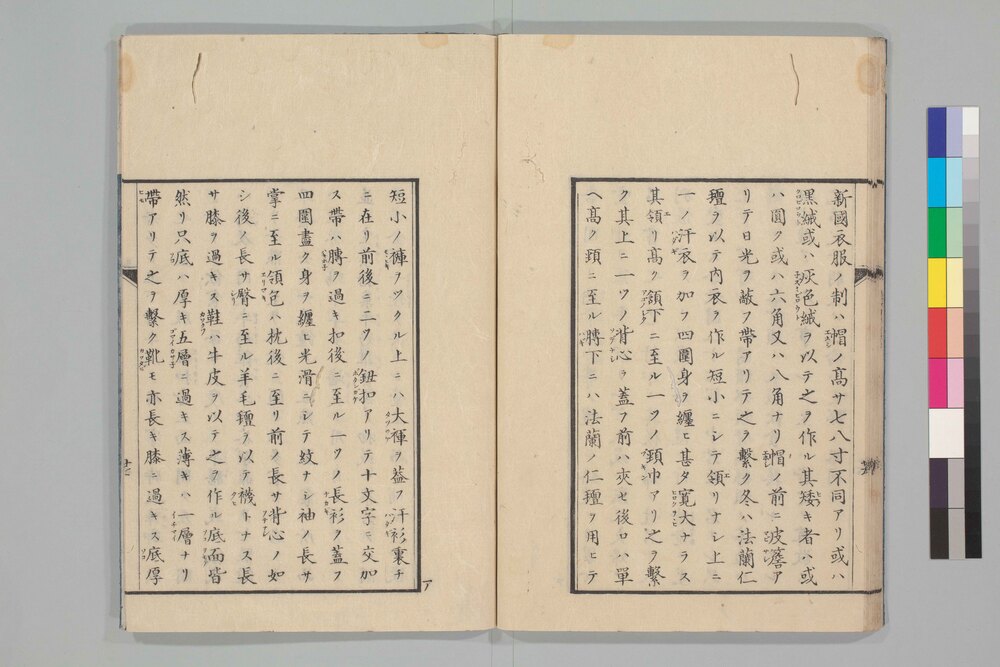 新國衣服ノ制ハ帽ノ髙サ七八寸不同アリ或ハ
黒絨或ハ灰色絨ヲ以テ之ヲ作ル其矮キ者ハ或
ハ圓ク或ハ六角又ハ八角ナリ帽ノ前ニ皮簷ア
リテ日光ヲ蔽フ帶アリテ之ヲ繫ク冬ハ法蘭仁
氊ヲ以テ内衣ヲ作ル短小ニシテ領リナシ上ニ
一ノ汗衣ヲ加フ四圍身ヲ纏ヒ甚タ寛大ナラス
其領リ髙ク頷下ニ至ル一ツノ頸巾アリ之ヲ繫
ク其上ニ一ツノ背心ヲ蓋フ前ハ夾セ後ロハ單
ヘ髙ク頸ニ至ル膊下ニハ法蘭ノ仁氊ヲ用ヒテ
短小ノ褌ヲツクル上ニハ大褌ヲ蓋フ汗衫裏チ
ニ在リ前後ニ二ツノ鈕扣アリテ十文字ニ交加
ス帶ハ膊ヲ過キ扣後ニ至ル一ツノ長衫ヲ蓋フ
四圍盡ク身ヲ纏ヒ光滑ニシテ紋ナシ袖ノ長サ
掌ニ至ル領色ハ枕後ニ至リ前ノ長サ背心ノ如
シ後ノ長サ臀ニ至ル羊毛氊ヲ以テ襪トナス長
サ膝ヲ過キス鞋ハ牛皮ヲ以テ之ヲ作ル底面皆
然リ只底ハ厚キ五層ニ過キス薄キハ一層ナリ
帶アリテ之ヲ繫ク靴モ亦長キ膝ニ過キス底厚